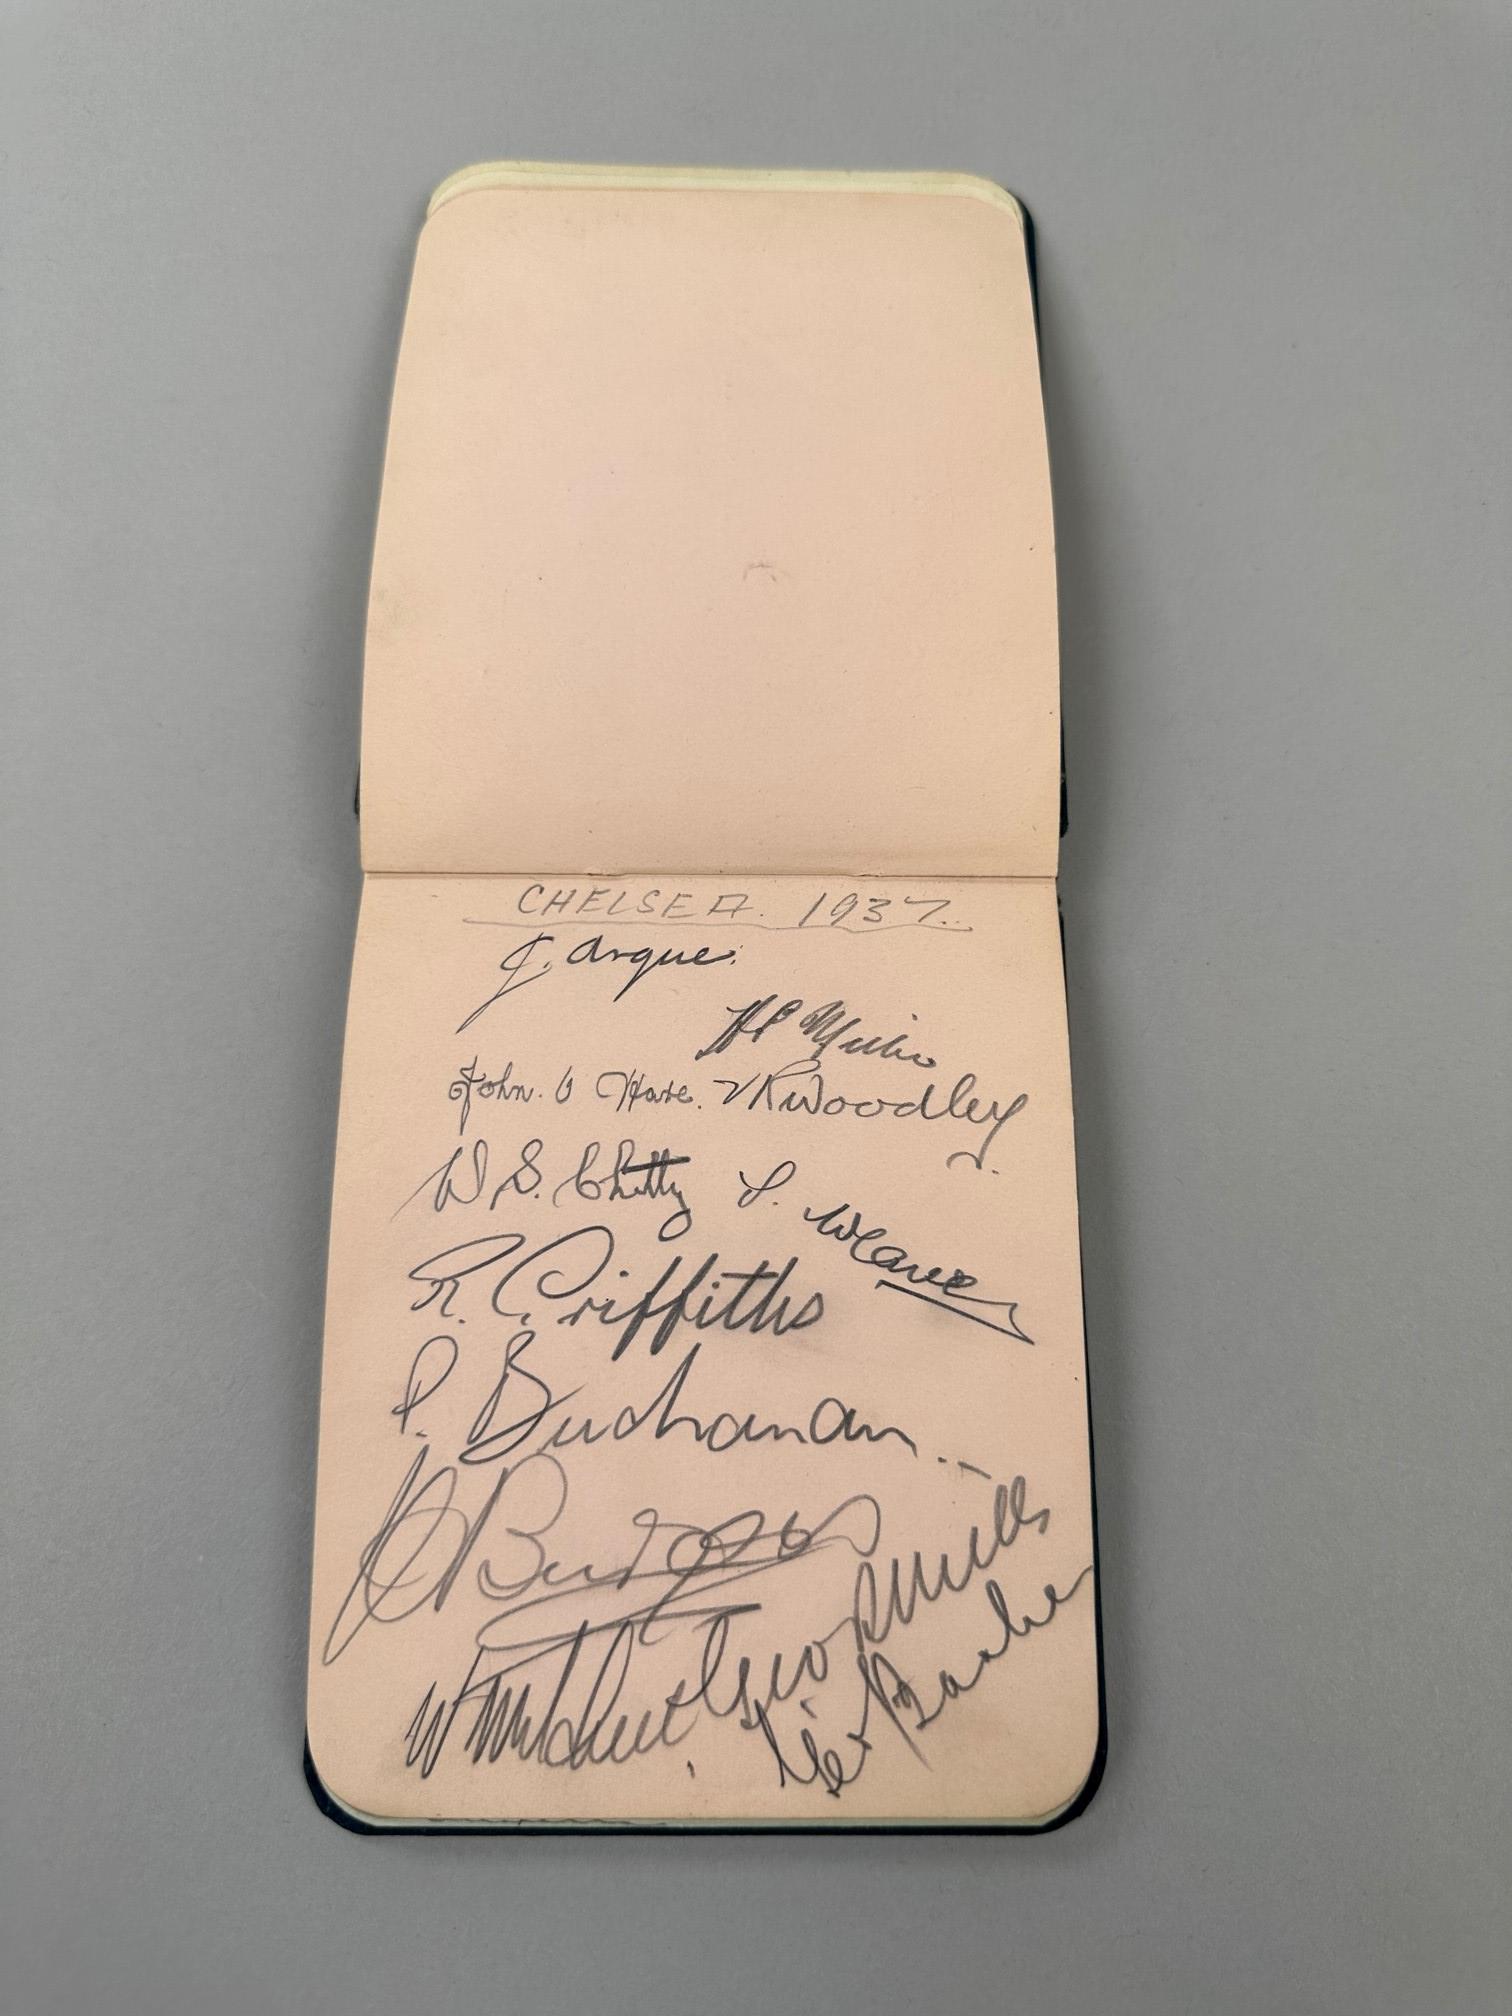 CHELSEA. 1937.
J. Argue.
John. O Hare. VR Woodley
W. S. Chitty S. Weaver
R. Griffiths
P. Buchanan
H Burgess
Geo R Mills
Barber